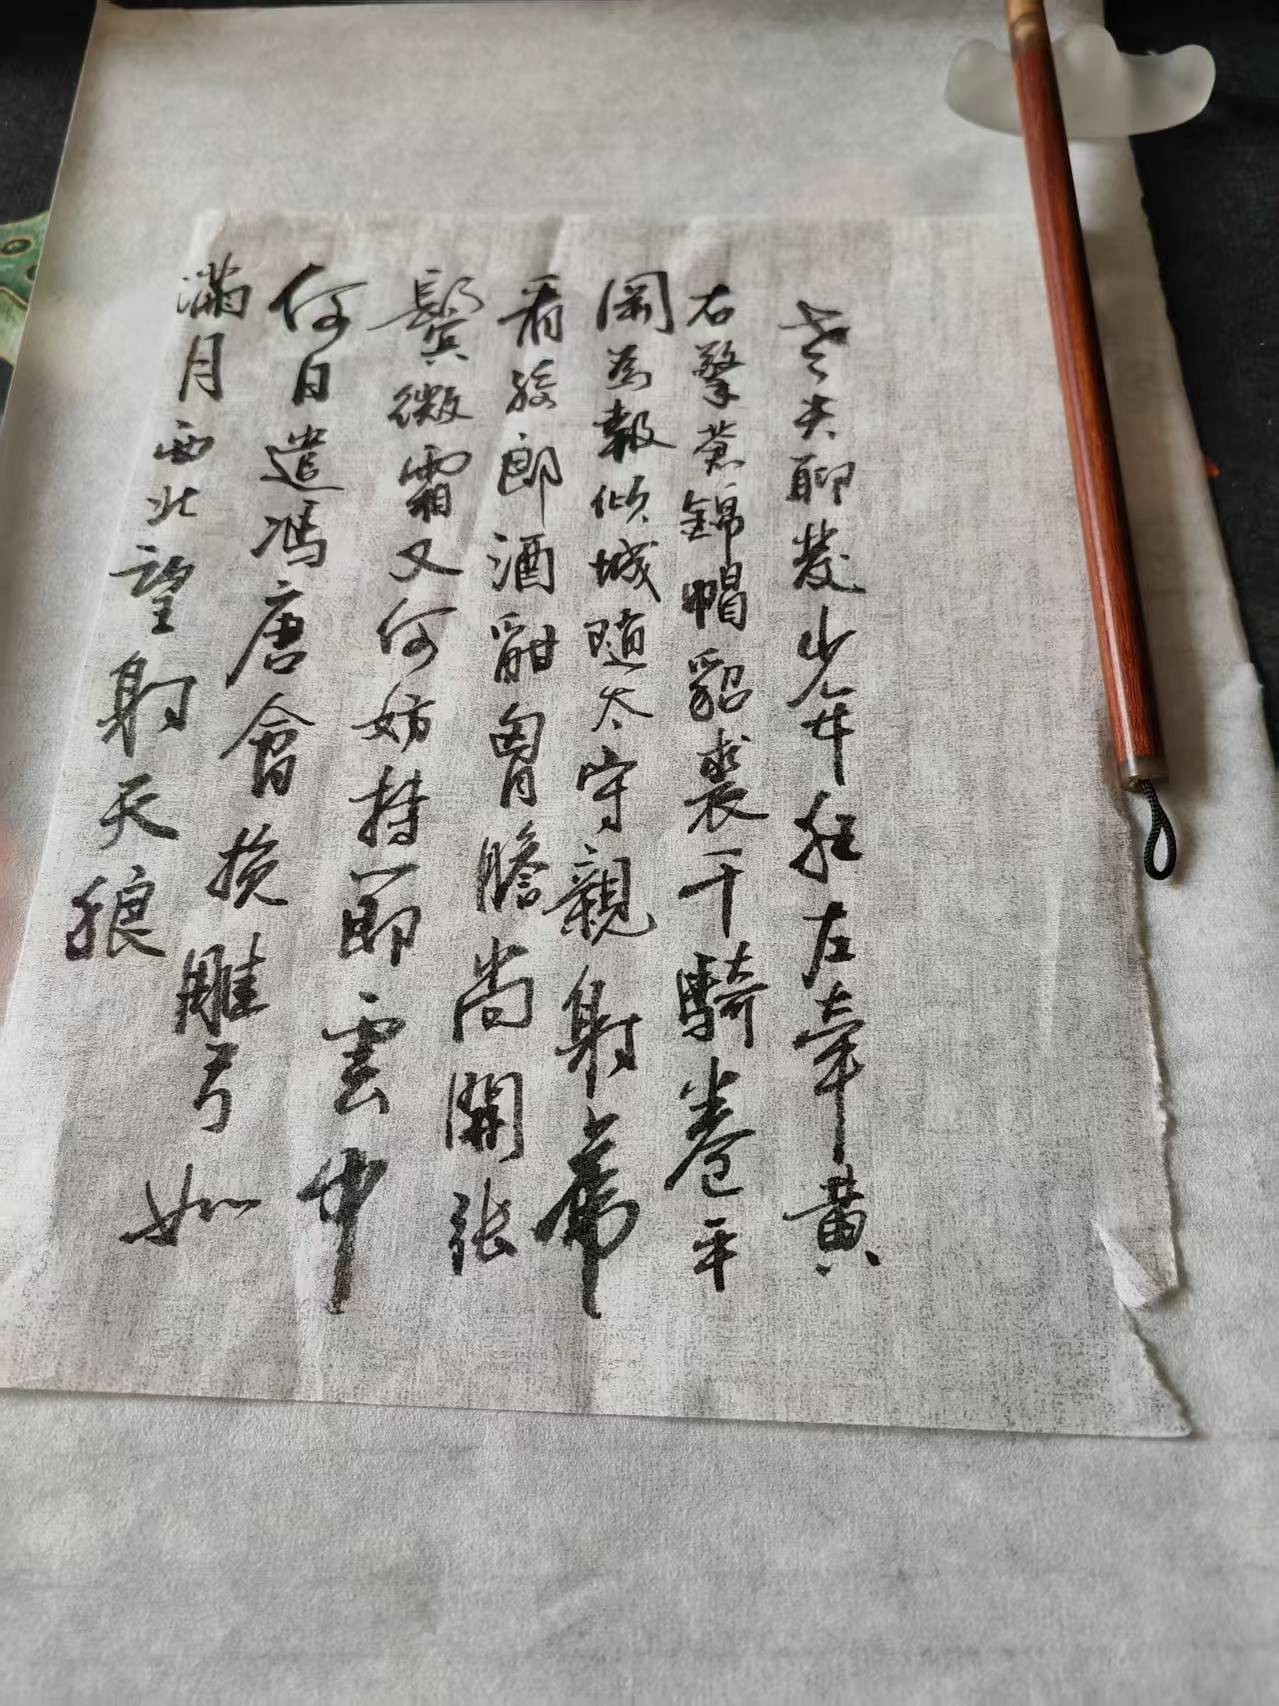 老夫聊發少年狂左牽黄
右擎蒼錦帽貂裘千騎卷平
岡為報傾城隨太守親射虎
看孫郎酒酣胷膽尚開張
鬢微霜又何妨持節雲中
何日遣馮唐會挽雕弓如
滿月西北望射天狼